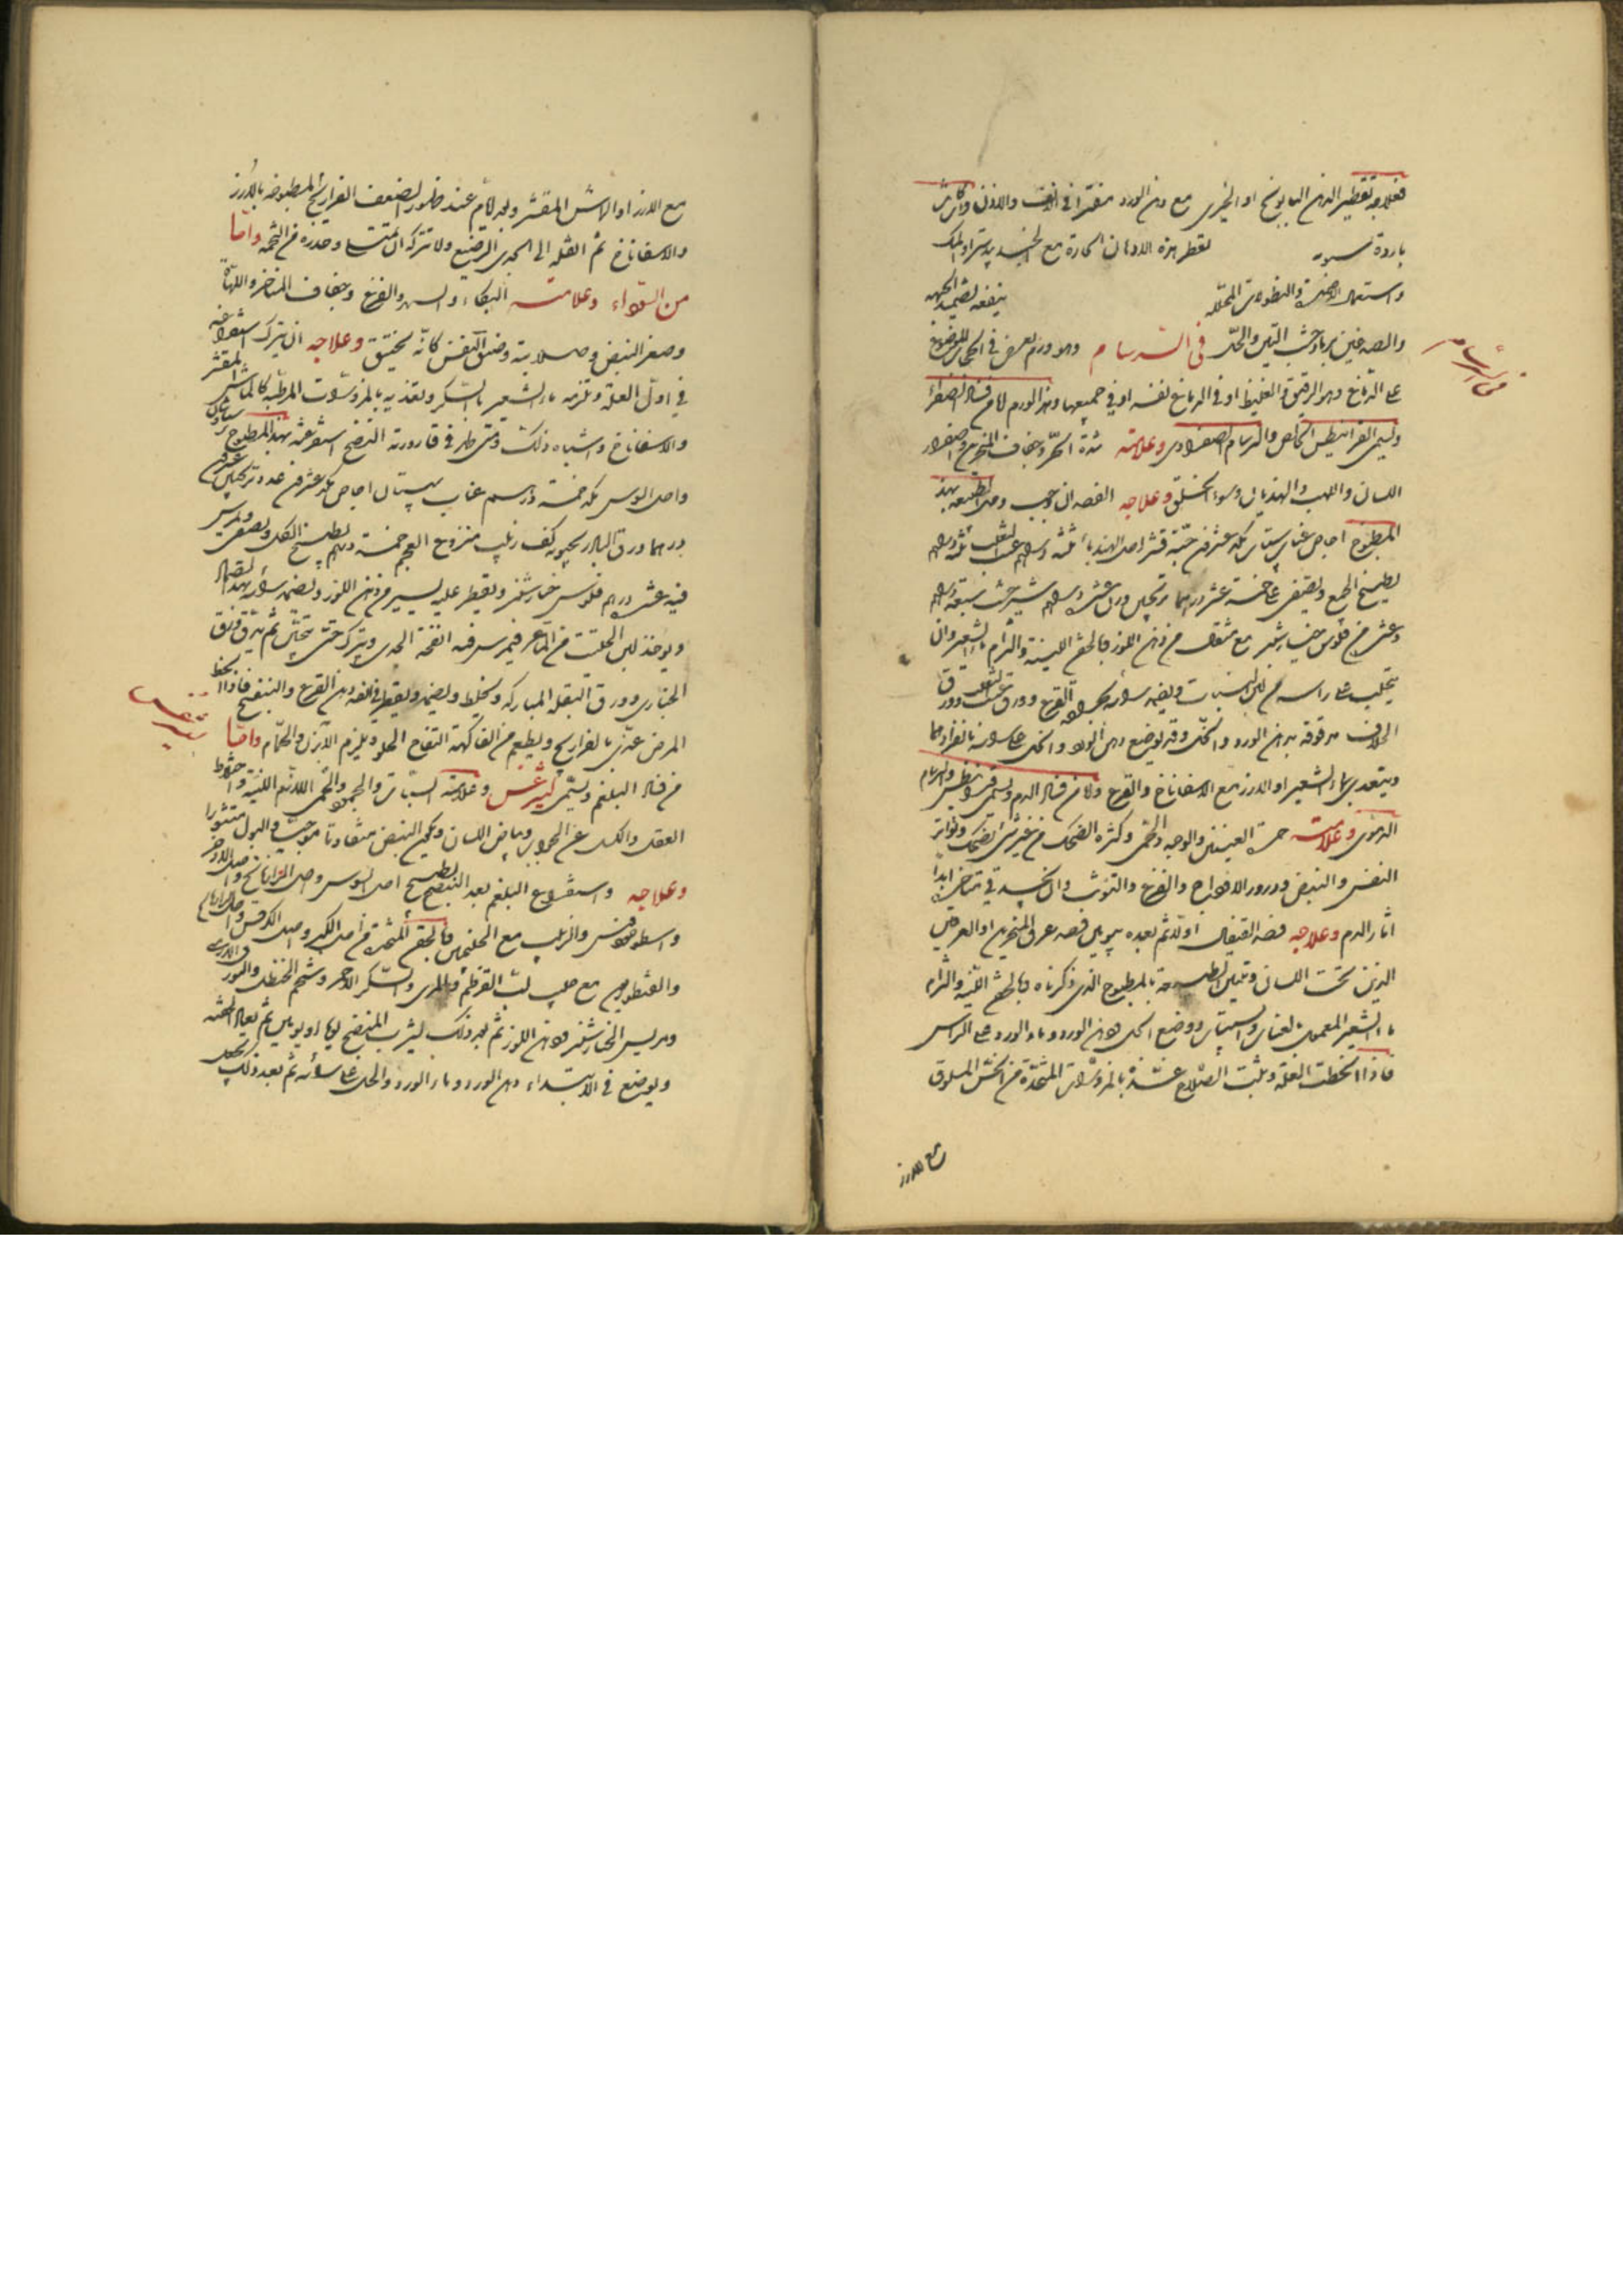 فعلاجه تقطير الدهن البابونج او الخيري مع دهن الورد مفترا في الانف والاذن وان كانت
باردة تقطر هذه الادهان الحارة مع الجندبيدستر او المسك
واستعمال الاضمدة والنطولات المحللة ينفعه تضميد الجبهة
والصدغين برماد خشب التين والخل في السرسام وهو ورم يعرض في الحجاب الموضوع
في السرسام
على الدماغ وهو الرقيق والغليظ او في الدماغ نفسه او في جميعها وهذا الورم اما من قبل الصفراء
ويسمى القرانيطس الخالص والسرسام الصفراوي وعلامته شدة الحر وجفاف المنخرين واصفرار
اللسان واللهب والهذيان وسوء الخلق وعلاجه الفصد ان وجب وحل الطبيعة بهذا
المطبوخ اجاص عناب سبستان مكد عشرين حبة قشر اصل الهندبا ثلثة دراهم عنب الثعلب ثلثة دراهم
يطبخ الجميع ويصفى على خمسة عشر درهما ترنجبين وزن عشرة دراهم شيرخشت سبعة دراهم
وعشرة من فلوس خيارشنبر مع مثقال من دهن اللوز وبالحقن اللينة والزام ماء الشعير وان
يحلب على راسه من لبن النساء ويضمد راسه بجرادة القرع وورق عنب الثعلب وورق
الخلاف مدقوقة بدهن الورد والخل وقد يوضع دهن الورد والخل على راسه بانفرادهما
ويتغدى بماء الشعير او الارز مع الاسفاناخ والقرع واما من قبل الدم ويسمى قرانيطس والسرسام
الدموي وعلامته حمرة العينين والوجه والحمى وكثرة الضحك من غير شيء يضحك وتواتر
النفس والنبض ودرور الاوداج والفزع والتوثب وان يخرج في تنخعه ابدا
اثار الدم وعلاجه فصد القيفال اولا ثم بعده بيومين فصد عرق المنخرين او العرقين
الذين تحت اللسان وتليين الطبيعة بالمطبوخ الذي ذكرناه وبالحقن اللينة والزام
ماء الشعير المعمول بالعناب والسبستان ووضع الخل ودهن الورد وماء الورد على الراس
فاذا انحطت العلة وثبت الصلاح غذه بالمزورات المتخذة من الخس المسلوق
مع الارز
مع الارز او الماش المقشر وبعد ايام عند ظهور الضعف الفراريج المطبوخة بالارز
والاسفاناخ ثم انقله الى الجدي الرضيع ولا تتركه ان يمتلئ وحذره من التخمة واما
من السوداء وعلامته البكاء والسهر والفزع وجفاف المناخر واللهاة
وصغر النبض وصلابته وضيق النفس كانه يختنق وعلاجه ان يترك استفراغه
في اول العلة وتلزمه ماء الشعير بالسكر وتغذيه بالمزورات المرطبة كالماش المقشر
والاسفاناخ واشباه ذلك ومتى ظهر في قارورته النضج استفرغه بهذا المطبوخ
واصل السوس مكد خمسة دراهم عناب سبستان اجاص مكد عشرين عدد ترنجبين عشرين
درهما ورق البادرنجبويه كف زبيب منزوع العجم خمسة دراهم يطبخ الكل ويصفى ويمرس
فيه عشرة دراهم فلوس خيارشنبر ويقطر عليه يسير من دهن اللوز ويضمد راسه بهذا الضماد
ويؤخذ لبن الحلبت من الماعز فيمرس فيه انفحة الجدي ويترك حتى يتجبن ثم يدق ورق
الخبازي وورق البقلة المباركة ويخلط ويضمد ويقطر في انفه دهن القرع والبنفسج فاذا انحط
المرض غذي بالفراريج ويطعم من الفاكهة التفاح الحلو ويلزم الابزن والحمام واما
ليثرغس
من قبل البلغم ويسمى ليثرغس وعلامته السبات والجمود والحمى اللازمة اللينة واختلاط
العقل والكسل عن الجواب وبياض اللسان ويكون النبض متفاوتا موجيا والبول متثورا
وعلاجه استفراغ البلغم بعد النضج بطبيخ اصل السوس واصل الرازيانج واصل الاذخر
واسطوخودس والزبيب مع الجلنجبين وبالحقن المتخذة من اصل الكبر واصل الكرفس
والقنطوريون مع حب لب القرطم وبالمري والسكر الاحمر وشحم الحنظل والبورق
ومريس الخيارشنبر ودهن اللوز ثم بعد ذلك يشرب المنضج يوما او يومين ثم تعاد الحقنة
ويوضع في الابتداء دهن الورد وماء الورد والخل على راسه ثم بعد ذلك